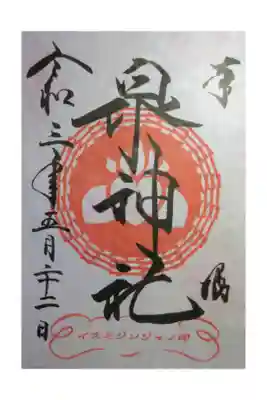 奉拝
泉神社
令和三年五月二十二日
イズミジンジャノ印